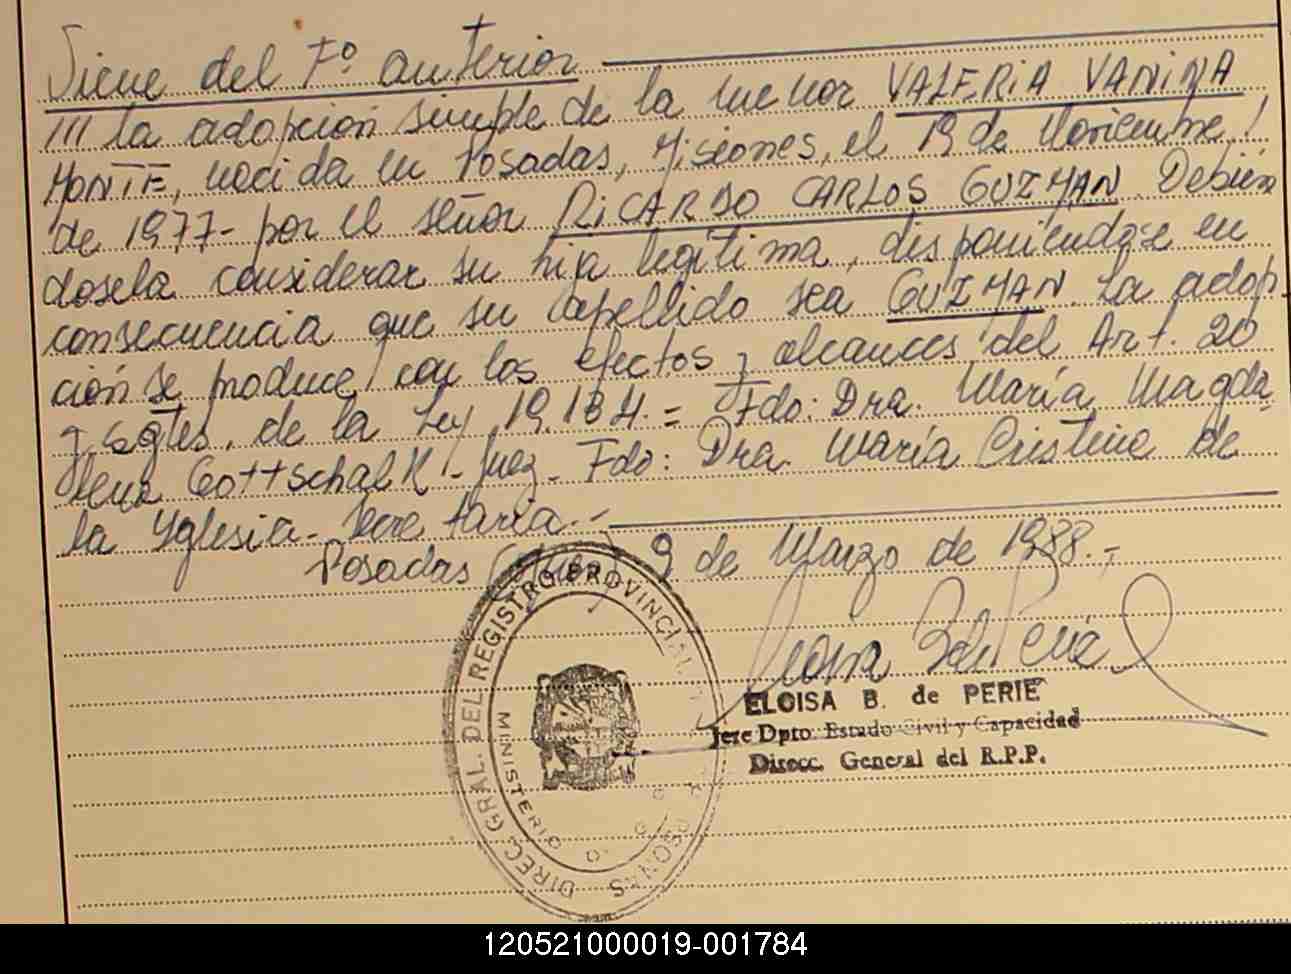 Viene del Fº anterior
/// la adopcion simple de la menor VALERIA VANINA
MONTIE, nacida en Posadas, Misiones, el 19 de Noviembre
de 1977- por el señor RICARDO CARLOS GUZMAN. Debién
dosela considerar su hija legítima, disponiendose en
consecuencia que su apellido sea GUZMAN. La adop
ción se produce con los efectos y alcances del Art. 20
y sgtes. de la Ley 19.134.= Fdo: Dra. María Magda_
lena Gottschalk - Juez - Fdo: Dra. María Cristina de
la Yglesia - Secretaria.-
Posadas 9 de Marzo de 1988.-
DIREC. GRAL. DEL REGISTRO PROVINCIAL
MINISTERIO
MISIONES
ELOISA B. de PERIE
Jefe Dpto. Estado Civil y Capacidad
Direcc. General del R.P.P.
120521000019-001784